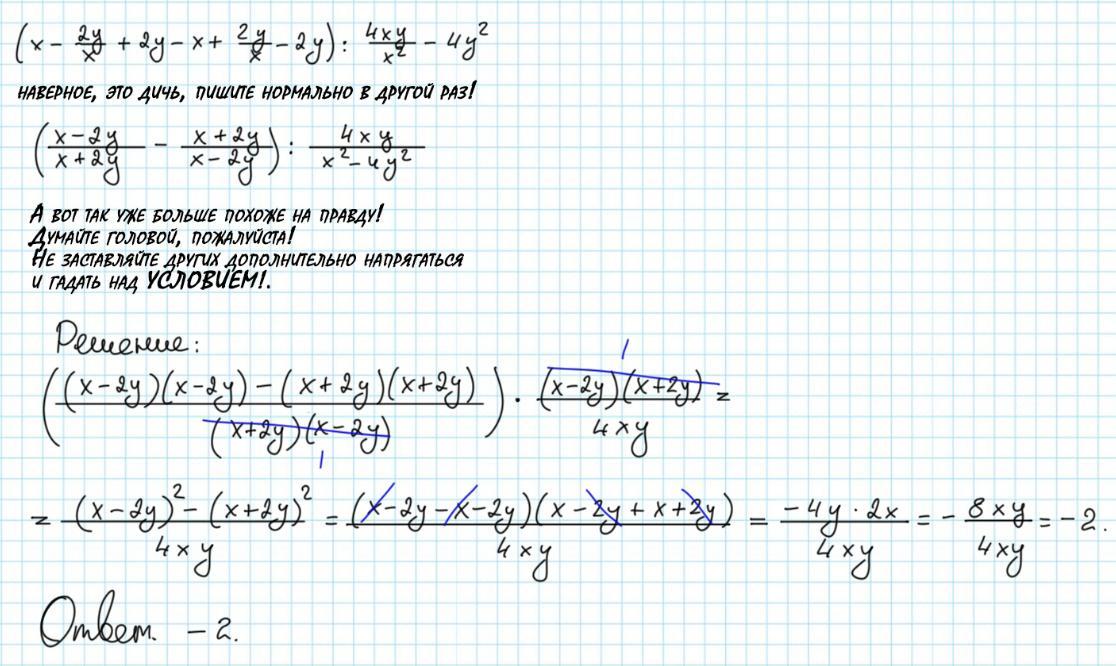 (x - 2y/x + 2y - x + 2y/x - 2y) : 4xy/x² - 4y²
НАВЕРНОЕ, ЭТО ДИЧЬ, ПИШИТЕ НОРМАЛЬНО В ДРУГОЙ РАЗ!
((x-2y)/(x+2y) - (x+2y)/(x-2y)) : 4xy/(x²-4y²)
А ВОТ ТАК УЖЕ БОЛЬШЕ ПОХОЖЕ НА ПРАВДУ!
ДУМАЙТЕ ГОЛОВОЙ, ПОЖАЛУЙСТА!
НЕ ЗАСТАВЛЯЙТЕ ДРУГИХ ДОПОЛНИТЕЛЬНО НАПРЯГАТЬСЯ
И ГАДАТЬ НАД УСЛОВИЕМ!.
Решение:
(((x-2y)(x-2y) - (x+2y)(x+2y))/((x+2y)(x-2y))) · ((x-2y)(x+2y))/4xy =
= ((x-2y)² - (x+2y)²)/4xy = ((x-2y-x-2y)(x-2y+x+2y))/4xy = (-4y·2x)/4xy = - 8xy/4xy = -2.
Ответ. -2.